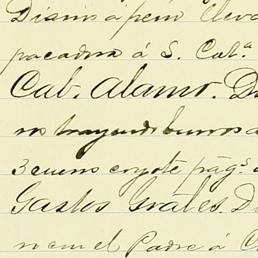 Diario á peón lleva
pacadora á S. Catª
Cab. Alamo. D
ros trayendo burros a
3 cueros coyote pág.s
Gastos Grales. D
ron en el Padre á C